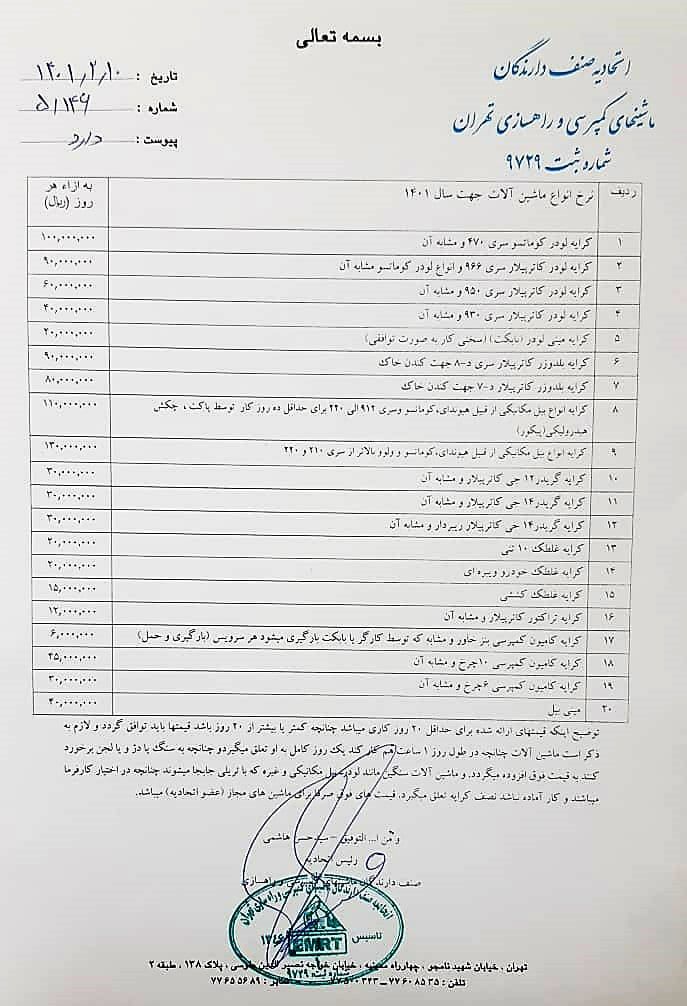 بسمه تعالی
اتحادیه صنف دارندگان
ماشینهای کمپرسی و راهسازی تهران
شماره ثبت ۹۷۲۹
تاریخ : ۱۴۰۱/۲/۱۰
شماره : ۵/۱۴۹
پیوست : دارد
ردیف نرخ انواع ماشین آلات جهت سال ۱۴۰۱ به ازاء هر روز (ریال)
۱ کرایه لودر کوماتسو سری ۴۷۰ و مشابه آن ۱۰۰,۰۰۰,۰۰۰
۲ کرایه لودر کاترپیلار سری ۹۶۶ و انواع لودر کوماتسو مشابه آن ۹۰,۰۰۰,۰۰۰
۳ کرایه لودر کاترپیلار سری ۹۵۰ و مشابه آن ۶۰,۰۰۰,۰۰۰
۴ کرایه لودر کاترپیلار سری ۹۳۰ و مشابه آن ۴۰,۰۰۰,۰۰۰
۵ کرایه مینی لودر (بابکت) (سختی کار به صورت توافقی) ۲۰,۰۰۰,۰۰۰
۶ کرایه بلدوزر کاترپیلار سری د-۸ جهت کندن خاک ۹۰,۰۰۰,۰۰۰
۷ کرایه بلدوزر کاترپیلار د-۷ جهت کندن خاک ۸۰,۰۰۰,۰۰۰
۸ کرایه انواع بیل مکانیکی از قبیل هیوندای،کوماتسو وسری ۹۱۲ الی ۲۴۰ برای حداقل ده روز کار توسط پاکت ، چکش ۱۱۰,۰۰۰,۰۰۰
هیدرولیکی(پیکور)
۹ کرایه انواع بیل مکانیکی از قبیل هیوندای،کوماتسو و ولوو بالاتر از سری ۲۱۰ و ۲۲۰ ۱۳۰,۰۰۰,۰۰۰
۱۰ کرایه گریدر۱۲ جی کاترپیلار و مشابه آن ۳۰,۰۰۰,۰۰۰
۱۱ کرایه گریدر۱۴ جی کاترپیلار و مشابه آن ۳۰,۰۰۰,۰۰۰
۱۲ کرایه گریدر۱۴ جی کاترپیلار ریپردار و مشابه آن ۳۰,۰۰۰,۰۰۰
۱۳ کرایه غلطک ۱۰ تنی ۲۰,۰۰۰,۰۰۰
۱۴ کرایه غلطک خودرو ویبره ای ۲۰,۰۰۰,۰۰۰
۱۵ کرایه غلطک کششی ۱۵,۰۰۰,۰۰۰
۱۶ کرایه تراکتور کاترپیلار و مشابه آن ۱۲,۰۰۰,۰۰۰
۱۷ کرایه کامیون کمپرسی بنز خاور و مشابه که توسط کارگر یا بابکت بارگیری میشود هر سرویس (بارگیری و حمل) ۶,۰۰۰,۰۰۰
۱۸ کرایه کامیون کمپرسی ۱۰چرخ و مشابه آن ۴۵,۰۰۰,۰۰۰
۱۹ کرایه کامیون کمپرسی ۶چرخ و مشابه آن ۳۰,۰۰۰,۰۰۰
۲۰ مینی بیل ۴۰,۰۰۰,۰۰۰
توضیح اینکه قیمتهای ارائه شده برای حداقل ۲۰ روز کاری میباشد چنانچه کمتر یا بیشتر از ۲۰ روز باشد قیمتها باید توافق گردد و لازم به
ذکر است ماشین آلات چنانچه در طول روز ۱ ساعت هم کار کند یک روز کامل به او تعلق میگیردو چنانچه به سنگ یا دژ و یا لجن برخورد
کنند به قیمت فوق افزوده میگردد. و ماشین آلات سنگین مانند لودر، بیل مکانیکی و غیره که با تریلی جابجا میشوند چنانچه در اختیار کارفرما
میباشند و کار آماده نباشد نصف کرایه تعلق میگیرد. قیمت های فوق صرفا برای ماشین های مجاز (عضو اتحادیه) میباشد.
و من ا... التوفیق – سیدحسن هاشمی
رئیس اتحادیه
صنف دارندگان ماشینهای کمپرسی و راهسازی
اتحادیه صنف دارندگان ماشینهای کمپرسی و راه سازی تهران
تاسیس
EMRT
شماره ثبت ۹۷۲۹
تهران ، خیابان شهید نامجو ، چهارراه معینیه ، خیابان خواجه نصیر الدین طوسی ، پلاک ۱۳۸ ، طبقه ۲
تلفن : ۷۷۶۰۸۵۳۵ – ۷۷۵۲۰۳۴۳ نمابر : ۷۷۶۵۵۶۸۹